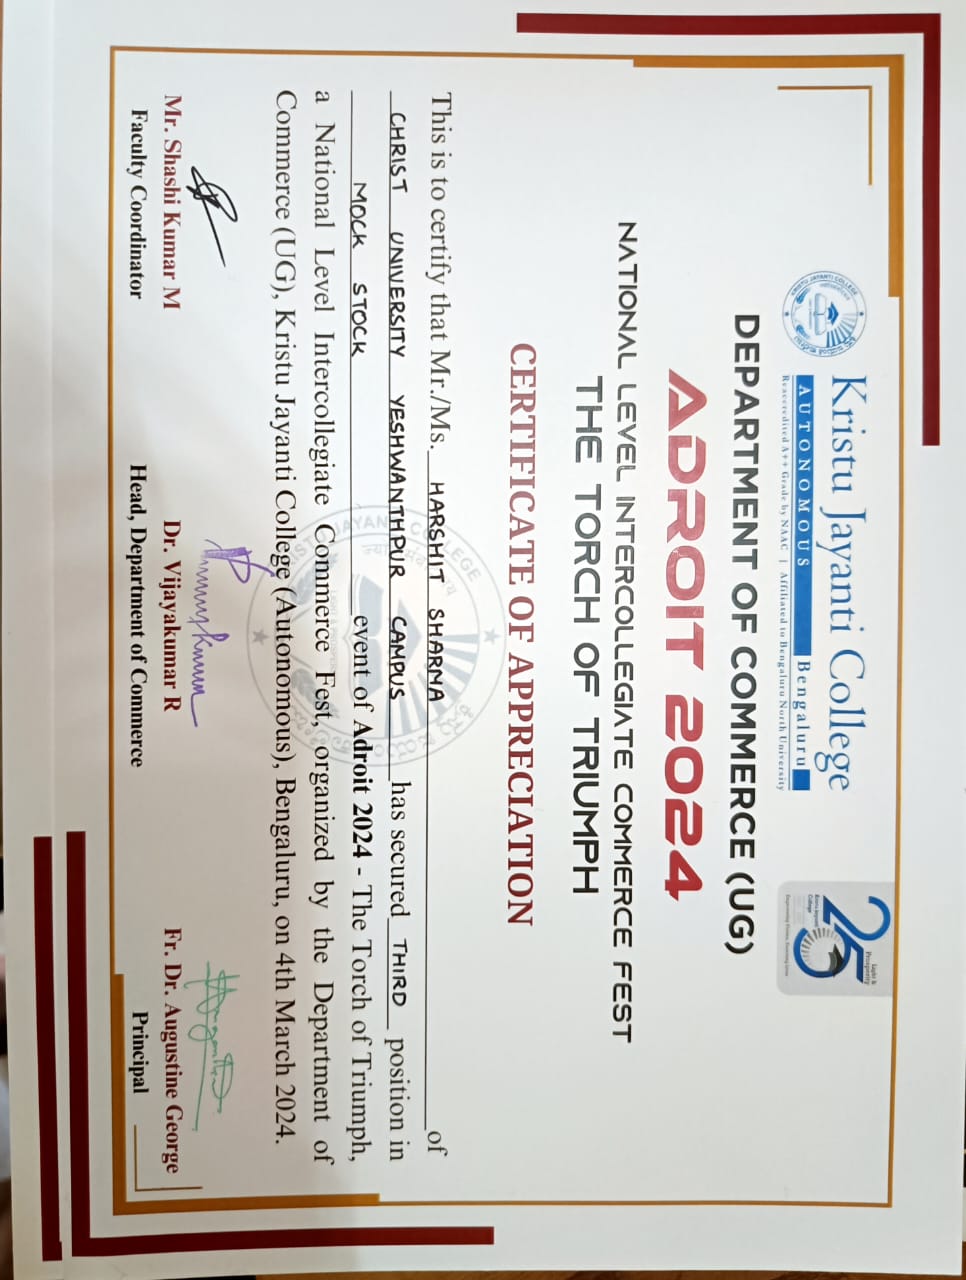 Kristu Jayanti College
AUTONOMOUS Bengaluru
Reaccredited A++ Grade by NAAC | Affiliated to Bengaluru North University
25
Light & Prosperity
Kristu Jayanti College
KRISTU JAYANTI COLLEGE
DEPARTMENT OF COMMERCE (UG)
ADROIT 2024
NATIONAL LEVEL INTERCOLLEGIATE COMMERCE FEST
THE TORCH OF TRIUMPH
CERTIFICATE OF APPRECIATION
This is to certify that Mr./Ms. HARSHIT SHARMA of
CHRIST UNIVERSITY YESHWANTHPUR CAMPUS has secured THIRD position in
MOCK STOCK event of Adroit 2024 - The Torch of Triumph,
a National Level Intercollegiate Commerce Fest, organized by the Department of
Commerce (UG), Kristu Jayanti College (Autonomous), Bengaluru, on 4th March 2024.
Mr. Shashi Kumar M Dr. Vijayakumar R Fr. Dr. Augustine George
Faculty Coordinator Head, Department of Commerce Principal